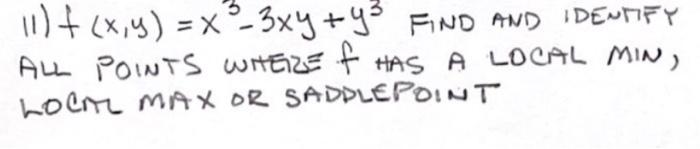 11) f(x,y) = x³ - 3xy + y³ FIND AND IDENTIFY
ALL POINTS WHERE f HAS A LOCAL MIN,
LOCAL MAX OR SADDLEPOINT